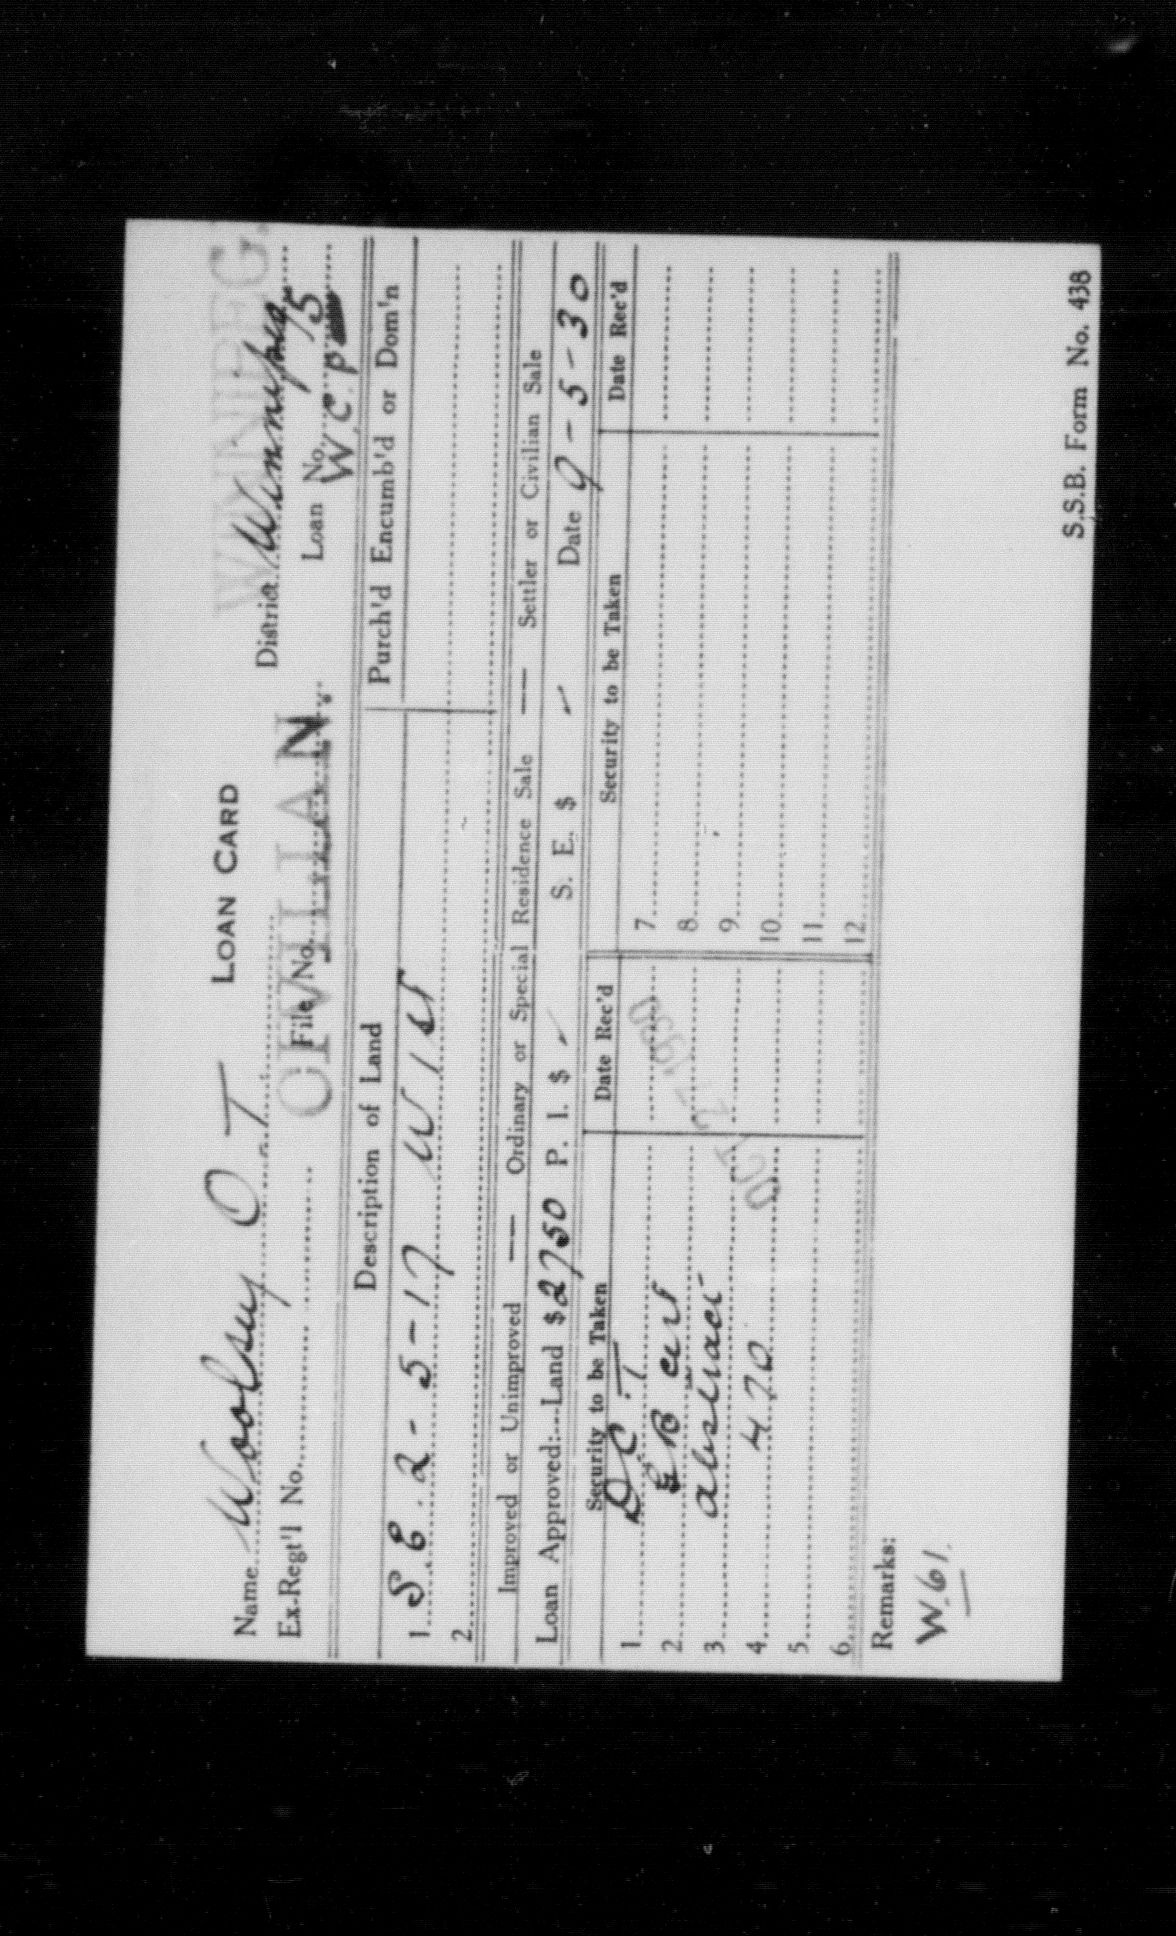 LOAN CARD
WINNIPEG.
Name Woolsey O T District Winnipeg
CIVILIAN.
Ex-Regt'l No. File No. Loan No. 15
W.C.P
Description of Land Purch'd Encumb'd or Dom'n
1. S.E. 2-5-17 W 1st
2.
Improved or Unimproved — Ordinary or Special Residence Sale — Settler or Civilian Sale
Loan Approved:---Land $2750 P. I. $ - S. E. $ - Date 9-5-30
Security to be Taken Date Rec'd Security to be Taken Date Rec'd
1. D.C.T 7.
2. 8.
3. abstract 9.
4. 470 10.
5. 11.
6. 12.
OCT
Remarks:
W.61.
S.S.B. Form No. 438